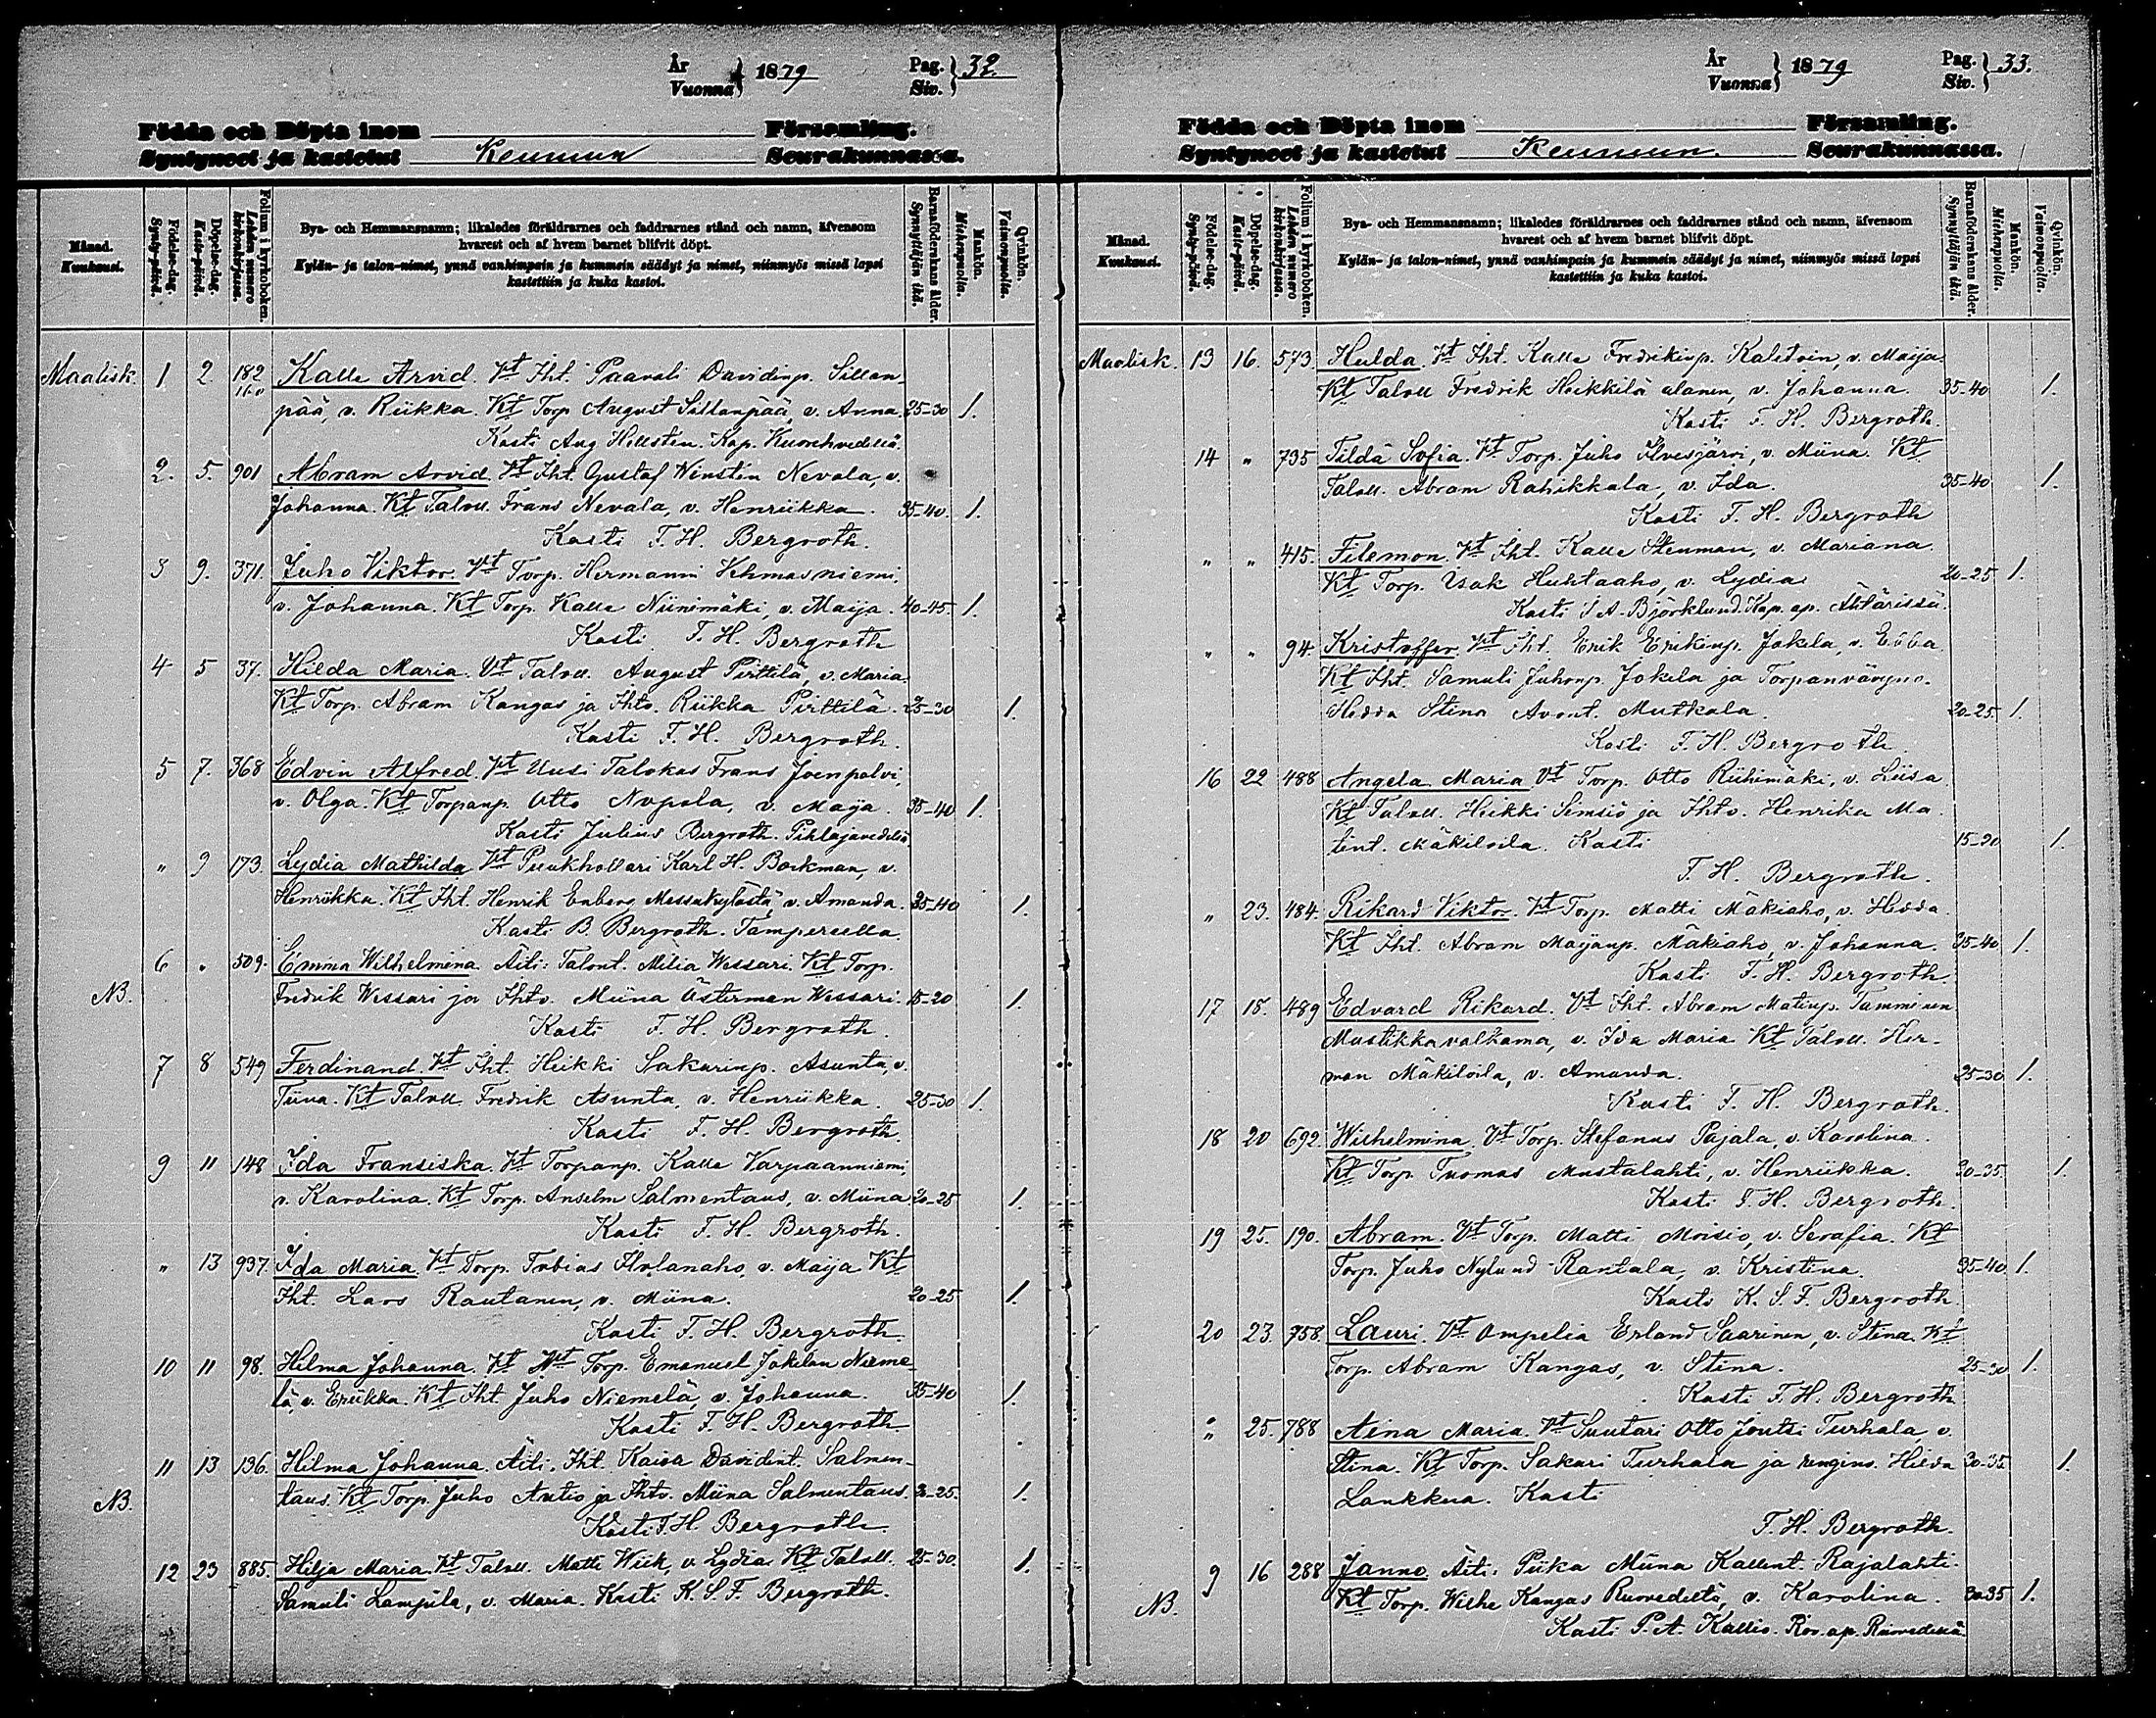 År Vuonna } 1879 Pag. Siv. } 32.
Födda och Döpta inom Församling.
Syntyneet ja kastetut Keuruun Seurakunnassa.
Månad. Kuukausi.
Födelse-dag. Synty-päivä.
Döpelse-dag. Kaste-päivä.
Folium i kyrkoboken. Lehden numero kirkonkirjassa.
Bya- och Hemmansnamn; likaledes föräldrarnes och faddrarnes stånd och namn, äfvensom
hvarest och af hvem barnet blifvit döpt.
Kylän- ja talon-nimet, ynnä vanhimpain ja kummein säädyt ja nimet, niinmyös missä lapsi
kastettiin ja kuka kastoi.
Barnaföderskans ålder. Synnyttäjän ikä.
Mankön. Miehenpuolia.
Qvinkön. Vaimonpuolia.
Maalisk. 1 2. 182 Kalle Arvid. Vt Iht. Paavali Davidinp. Sillan-
160 pää, v. Riikka. Kt Torp August Sillanpää, v. Anna. 25-30 1.
Kasti Aug Hellsten. Kap. Kuorehvedellä.
2. 5. 901 Abram Arvid. Vt Iht. Gustaf Winstén Nevala, v.
Johanna. Kt Taloll. Frans Nevala, v. Henriikka. 35-40. 1.
Kasti F. H. Bergroth.
3 9. 371. Juho Viktor. Vt Torp. Hermanni Vehmasniemi,
v. Johanna. Kt Torp. Kalle Niinimäki, v. Maija. 40-45. 1.
Kasti F. H. Bergroth
4 5 37. Hilda Maria. Vt Taloll. August Pirttilä, v. Maria.
Kt Torp. Abram Kangas ja Ihto. Riikka Pirttilä. 25-30 1.
Kasti F. H. Bergroth.
5 7. 368 Edvin Alfred. Vt Uusi Talokas Frans Joenpolvi,
v. Olga. Kt Torpanp. Otto Nopola, v. Maija. 35-40 1.
Kasti Julius Bergroth. Pihlajavedellä
" 9 173. Lydia Mathilda Vt Puukhollari Karl H. Backman, v.
Henriikka. Kt Iht. Henrik Enberg Messukylästä, v. Amanda. 35-40 1.
Kasti B. Bergroth. Tampereella.
6 " 509. Emma Wilhelmina. Äiti: Talont. Milia Wessari. Kt Torp.
NB. Fredrik Wessari ja Ihto. Miina Österman Wessari. 15-20 1.
Kasti F. H. Bergroth.
7 8 549 Ferdinand. Vt Iht. Heikki Sakarinp. Asunta, v.
Tiina. Kt Taloll. Fredrik Asunta, v. Henriikka. 25-30 1.
Kasti F. H. Bergroth.
9 11 148 Ida Fransiska. Vt Torpanp. Kalle Varpaanniemi,
v. Karolina. Kt Torp. Anselm Salmentaus, v. Miina 20-25 1.
Kasti F. H. Bergroth.
" 13 937. Ida Maria. Vt Torp. Tobias v. Maija Kt
Iht. Lars Rautanen, v. Miina. 20-25 1.
Kasti F. H. Bergroth
10 11 98. Hilma Johanna. Vt Torp. Emanuel Jokelan Nieme-
lä, v. Eriikka. Kt Iht. Juho Niemelä, v. Johanna. 35-40 1.
Kasti F. H. Bergroth
11 13 136. Hilma Johanna. Äiti. Iht. Kaisa Davidint. Salmen-
NB. taus. Kt Torp. Juho Autio ja Ihto. Miina Salmentaus. 20-25. 1.
Kasti F. H. Bergroth.
12 23 885. Hilja Maria. Vt Taloll. Matti Wiik, v. Lydia Kt Taloll. 25-30. 1.
Samuli Lampila, v. Maria. Kasti K. S. F. Bergroth.
År Vuonna } 1879 Pag. Siv. } 33.
Födda och Döpta inom Församling.
Syntyneet ja kastetut Keuruun. Seurakunnassa.
Månad. Kuukausi.
Födelse-dag. Synty-päivä.
Döpelse-dag. Kaste-päivä.
Folium i kyrkoboken. Lehden numero kirkonkirjassa.
Bya- och Hemmansnamn; likaledes föräldrarnes och faddrarnes stånd och namn, äfvensom
hvarest och af hvem barnet blifvit döpt.
Kylän- ja talon-nimet, ynnä vanhimpain ja kummein säädyt ja nimet, niinmyös missä lapsi
kastettiin ja kuka kastoi.
Barnaföderskans ålder. Synnyttäjän ikä.
Mankön. Miehenpuolia.
Qvinkön. Vaimonpuolia.
Maalisk. 13 16. 573. Hulda. Vt Iht. Kalle Fredrikinp. v. Maija
Kt Taloll Fredrik Heikkilä alanen, v. Johanna. 35-40 1.
Kasti F. H. Bergroth.
14 " 735 Tilda Sofia. Vt Torp. Juho Ilvesjärvi, v. Miina. Kt
Taloll. Abram Rahikkala, v. Ida. 35-40 1.
Kasti F. H. Bergroth
" " 415. Filemon. Vt Iht. Kalle Stenman, v. Mariana.
Kt Torp. Isak Huhtaaho, v. Lydia. 20-25 1.
Kasti I. A. Björklund. Kap. ap. Ähtärissä.
" " 94. Kristoffer Vt Iht. Erik Erikinp. Jokela, v. Ebba
Kt Iht. Samuli Juhonp. Jokela ja Torpanvävyn v.
Hedda Stina Avont. Mutkala. 20-25. 1.
Kasti F. H. Bergroth.
16 22 488 Angela Maria Vt Torp. Otto Riihimäki, v. Liisa
Kt Taloll. Heikki Simsiö ja Ihto. Henrika Ma-
tint. Mäkiloila. Kasti 15-20 1.
F. H. Bergroth.
" 23. 484. Rikard Viktor. Vt Torp. Matti Mäkiaho, v. Hedda.
Kt Iht. Abram Maijanp. Mäkiaho, v. Johanna. 35-40 1.
Kasti F. H. Bergroth.
17 18. 489 Edvard Rikard. Vt Iht. Abram Matinp. Tamminen
Mustikkavalkama, v. Ida Maria. Kt Taloll. Her-
man Mäkiloila, v. Amanda. 25-30 1.
Kasti F. H. Bergroth.
18 20 692. Wilhelmina. Vt Torp. Stefanus Pajala, v. Karolina.
Kt Torp. Tuomas Mustalahti, v. Henriikka. 30-35. 1.
Kasti F. H. Bergroth.
19 25. 190. Abram. Vt Torp. Matti Moisio, v. Serafia. Kt
Torp. Juho Nylund Rantala, v. Kristina. 35-40. 1.
Kasti K. S. F. Bergroth.
20 23. 758. Lauri. Vt Ompelia Erland Saarinen, v. Stina. Kt
Torp. Abram Kangas, v. Stina. 25-30 1.
Kasti F. H. Bergroth
" 25. 788 Aina Maria. Vt Suutari Otto Joutsi Turhala v.
Stina. Kt Torp. Sakari Turhala ja rengin v. Hilda 30-35. 1.
Lankkua. Kasti
F. H. Bergroth.
9 16 288 Janno. Äiti: Piika Miina Kallent. Rajalahti.
NB. Kt Torp. Wilhe Kangas Ruovedeltä, v. Karolina. 30-35 1.
Kasti P. A. Kallio. Rov. ap. Ruovedellä.